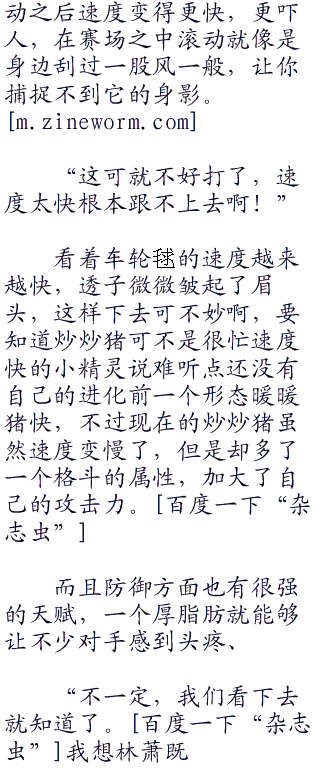 动之后速度变得更快，更吓
人，在赛场之中滚动就像是
身边刮过一股风一般，让你
捕捉不到它的身影。
[m.zineworm.com]
“这可就不好打了，速
度太快根本跟不上去啊！”
看着车轮毬的速度越来
越快，透子微微皱起了眉
头，这样下去可不妙啊，要
知道炒炒猪可不是很忙速度
快的小精灵说难听点还没有
自己的进化前一个形态暖暖
猪快，不过现在的炒炒猪虽
然速度变慢了，但是却多了
一个格斗的属性，加大了自
己的攻击力。[百度一下“杂
志虫”]
而且防御方面也有很强
的天赋，一个厚脂肪就能够
让不少对手感到头疼、
“不一定，我们看下去
就知道了。[百度一下“杂志
虫”]我想林萧既